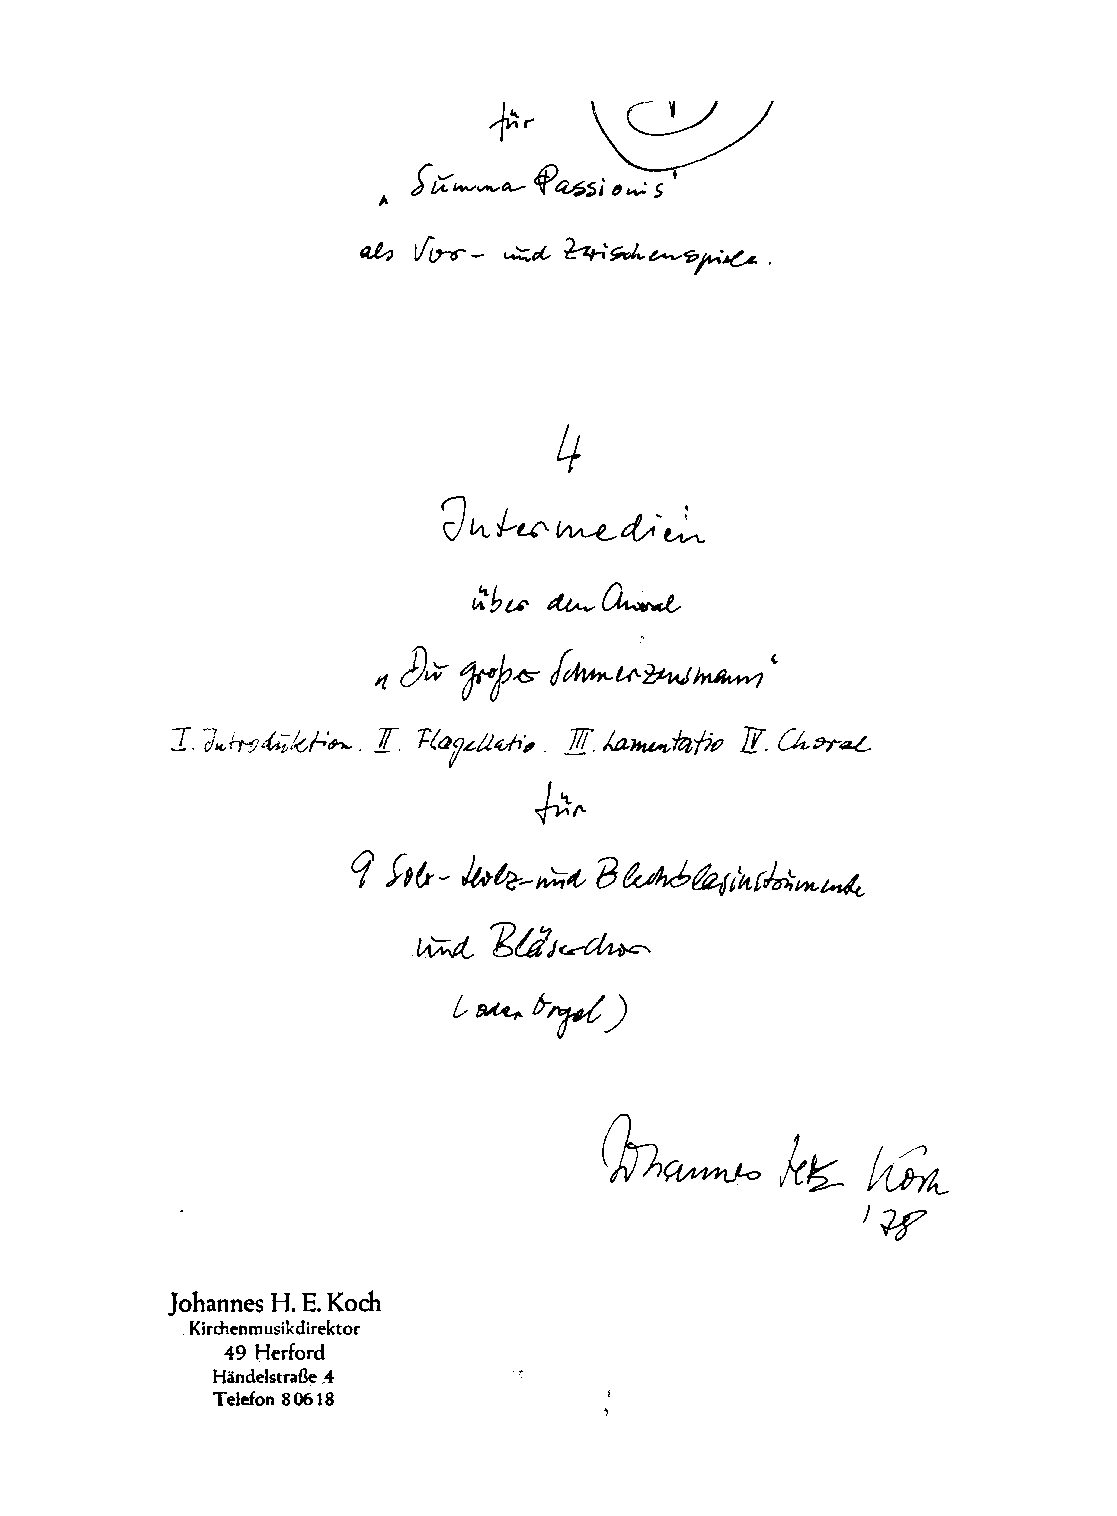 für
„Summa Passionis“
als Vor- und Zwischenspiele.
4
Intermedien
über den Choral
„Du großer Schmerzensmann“
I. Introduktion. II. Flagellatio. III. Lamentatio IV. Choral
für
9 Solo-Holz-und Blechblasinstrumente
und Bläserchor
(oder Orgel)
Johannes Koch
'78
Johannes H. E. Koch
Kirchenmusikdirektor
49 Herford
Händelstraße 4
Telefon 80618